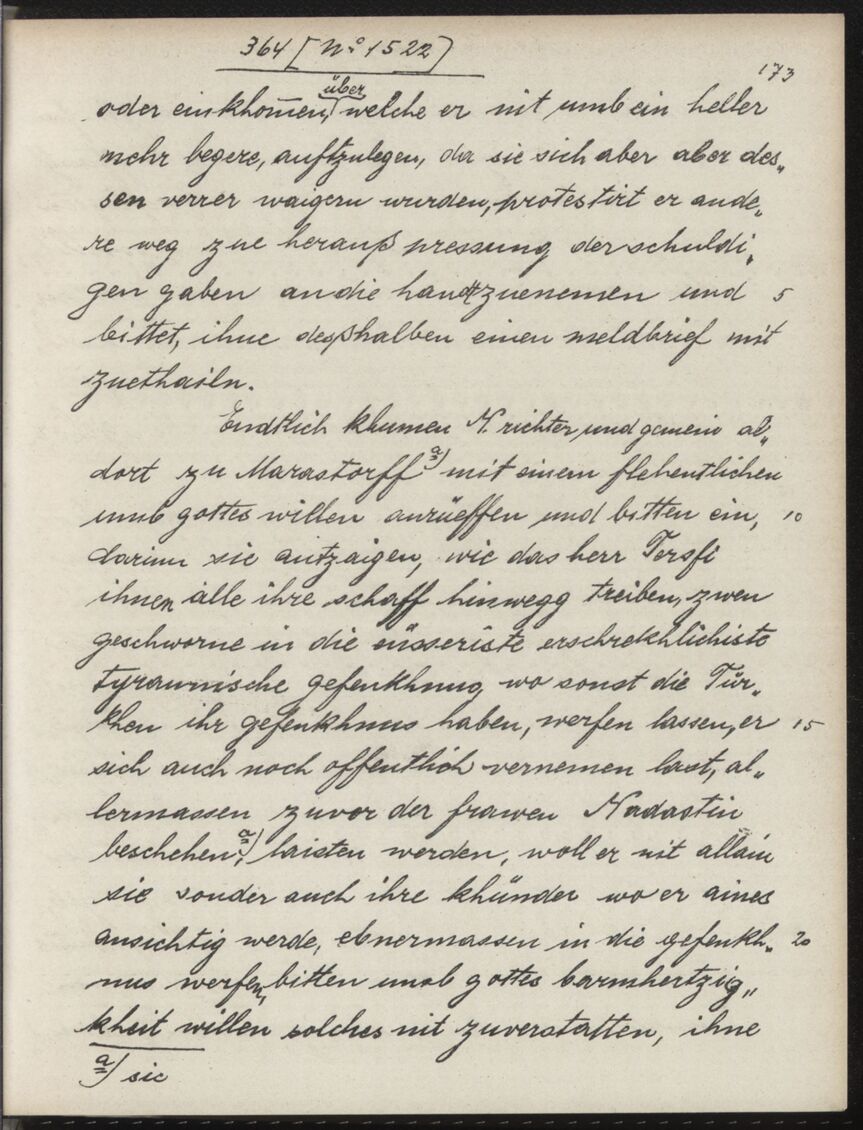 364 [N.° 1522]
173
oder einkhom̄en, über welche er nit umb ein heller
mehr begere, auftzulegen, da sie sich aber aber des„
sen verrer waigern wurden, protestirt er ande„
re weg zue herauß pressung der schuldi„
gen gaben an die handt zuenemen und 5
bittet, ihne deßhalben einen meldbrief mit
zuethailn.
Endtlich khumen N. richter und gemein al„
dort zu Marastorff a) mit einem flehentlichen
umb gottes willen anrüeffen und bitten ein, 10
darinn sie antzaigen, wie das herr Tersfi
ihnen alle ihre schaff hinwegg treiben, zwen
geschworne in die eüsseriste erschrekhlichiste
tyrannische gefenkhnug, wo sonst die Tür„
khen ihr gefenkhnus haben, werfen lassen, er 15
sich auch noch offentlich vernemen last, al„
lermassen zuvor der frawen Nadastin
beschehen, a) laisten werden, woll er nit allain
sie sonder auch ihre khünder wo er aines
ansichtig werde, ebnermassen in die gefenkh„ 20
nus werfen, bitten umb gottes barmhertzig„
kheit willen solches nit zuverstatten, ihne
a) sic